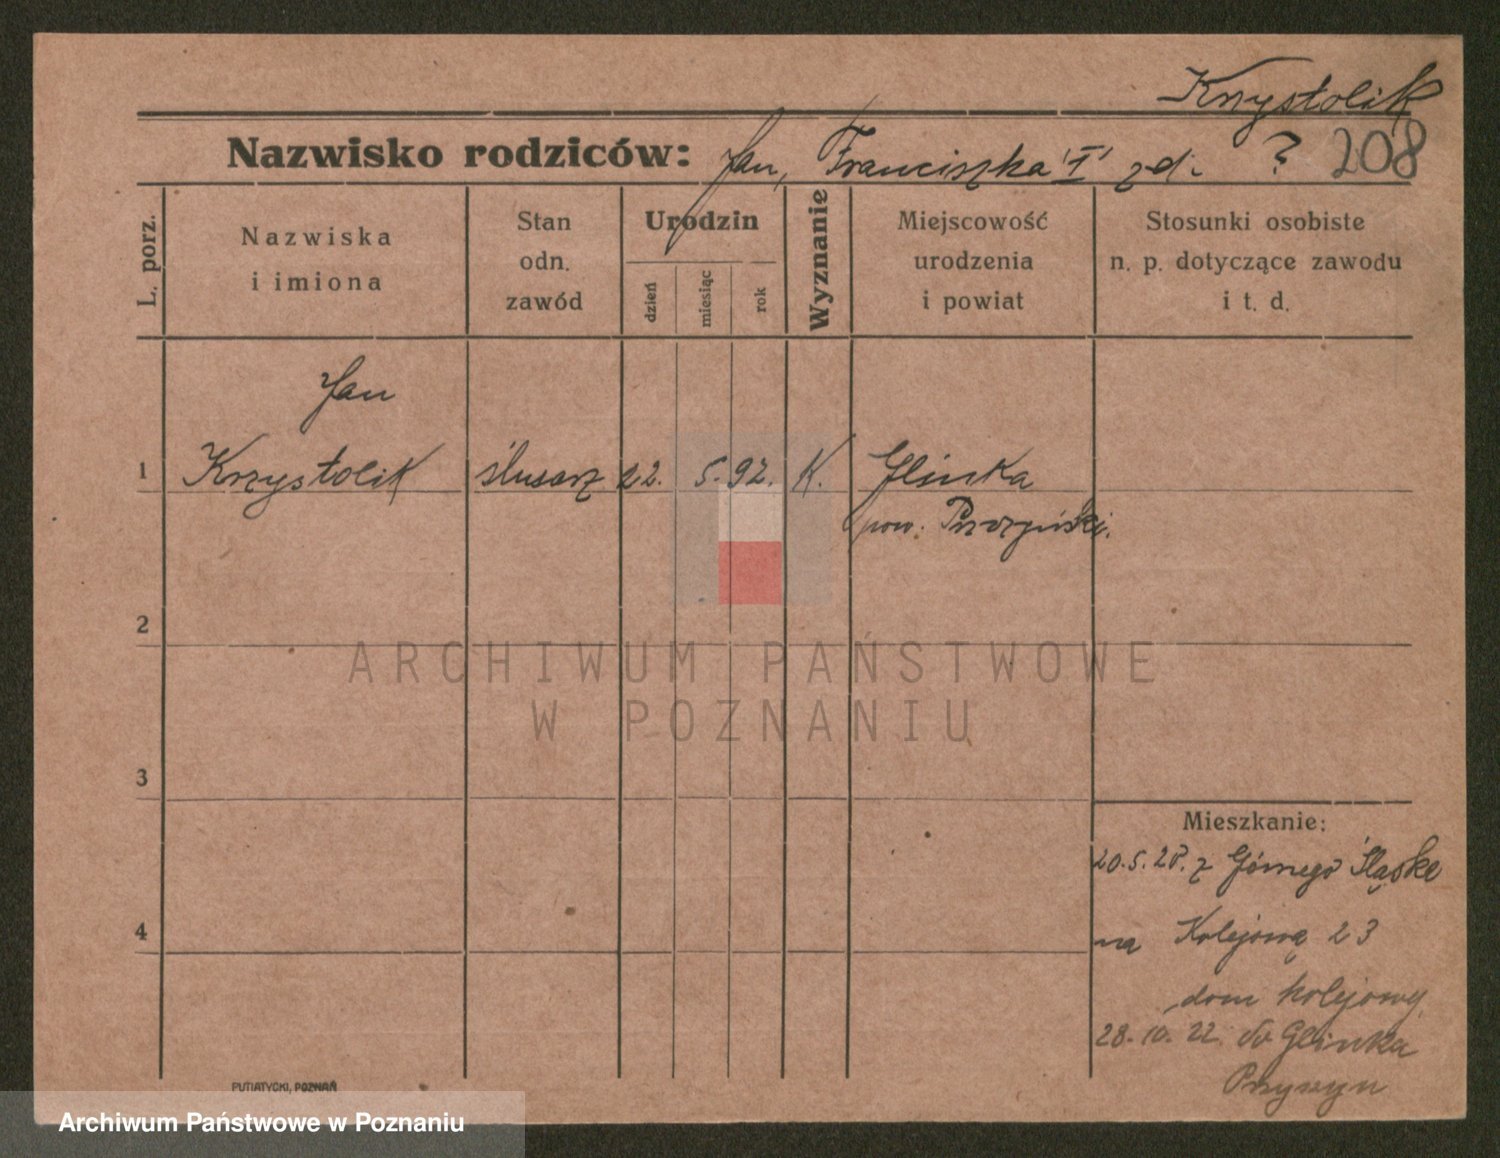 Krzystolik
Nazwisko rodziców: Jan, Franciszka 'I' zd. ? 208
L. porz.
Nazwiska
i imiona
Stan
odn.
zawód
Urodzin
dzień
miesiąc
rok
Wyznanie
Miejscowość
urodzenia
i powiat
Stosunki osobiste
n. p. dotyczące zawodu
i t. d.
Jan
1 Krzystolik ślusarz 22. 5. 92. K. Glinka
pow. Pszczyński.
2
ARCHIWUM PAŃSTWOWE
W POZNANIU
3
Mieszkanie:
20.5.20. z Górnego Śląska
4
na Kolejową 23
dom kolejowy
28.10.22 do Glinka
PUTIATYCKI, POZNAŃ
Archiwum Państwowe w Poznaniu